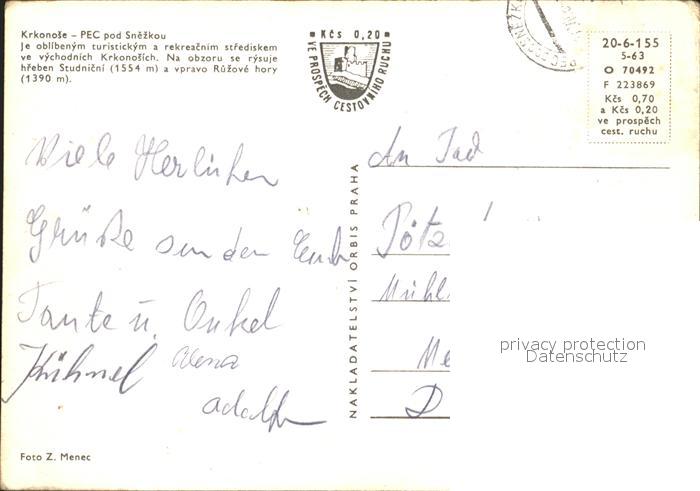 Krkonoše – PEC pod Sněžkou
Je oblíbeným turistickým a rekreačním střediskem
ve východních Krkonoších. Na obzoru se rýsuje
hřeben Studniční (1554 m) a vpravo Růžové hory
(1390 m).
Kčs 0,20
VE PROSPĚCH CESTOVNÍHO RUCHU
20-6-155
5-63
O 70492
F 223869
Kčs 0,70
a Kčs 0,20
ve prospěch
cest. ruchu
Viele Herlichen
Grüße senden Euch
Tante u. Onkel
Kühnel Alena
Adolf
NAKLADATELSTVÍ ORBIS PRAHA
An
Pötz
Mühl
Me
D
privacy protection
Datenschutz
Foto Z. Menec